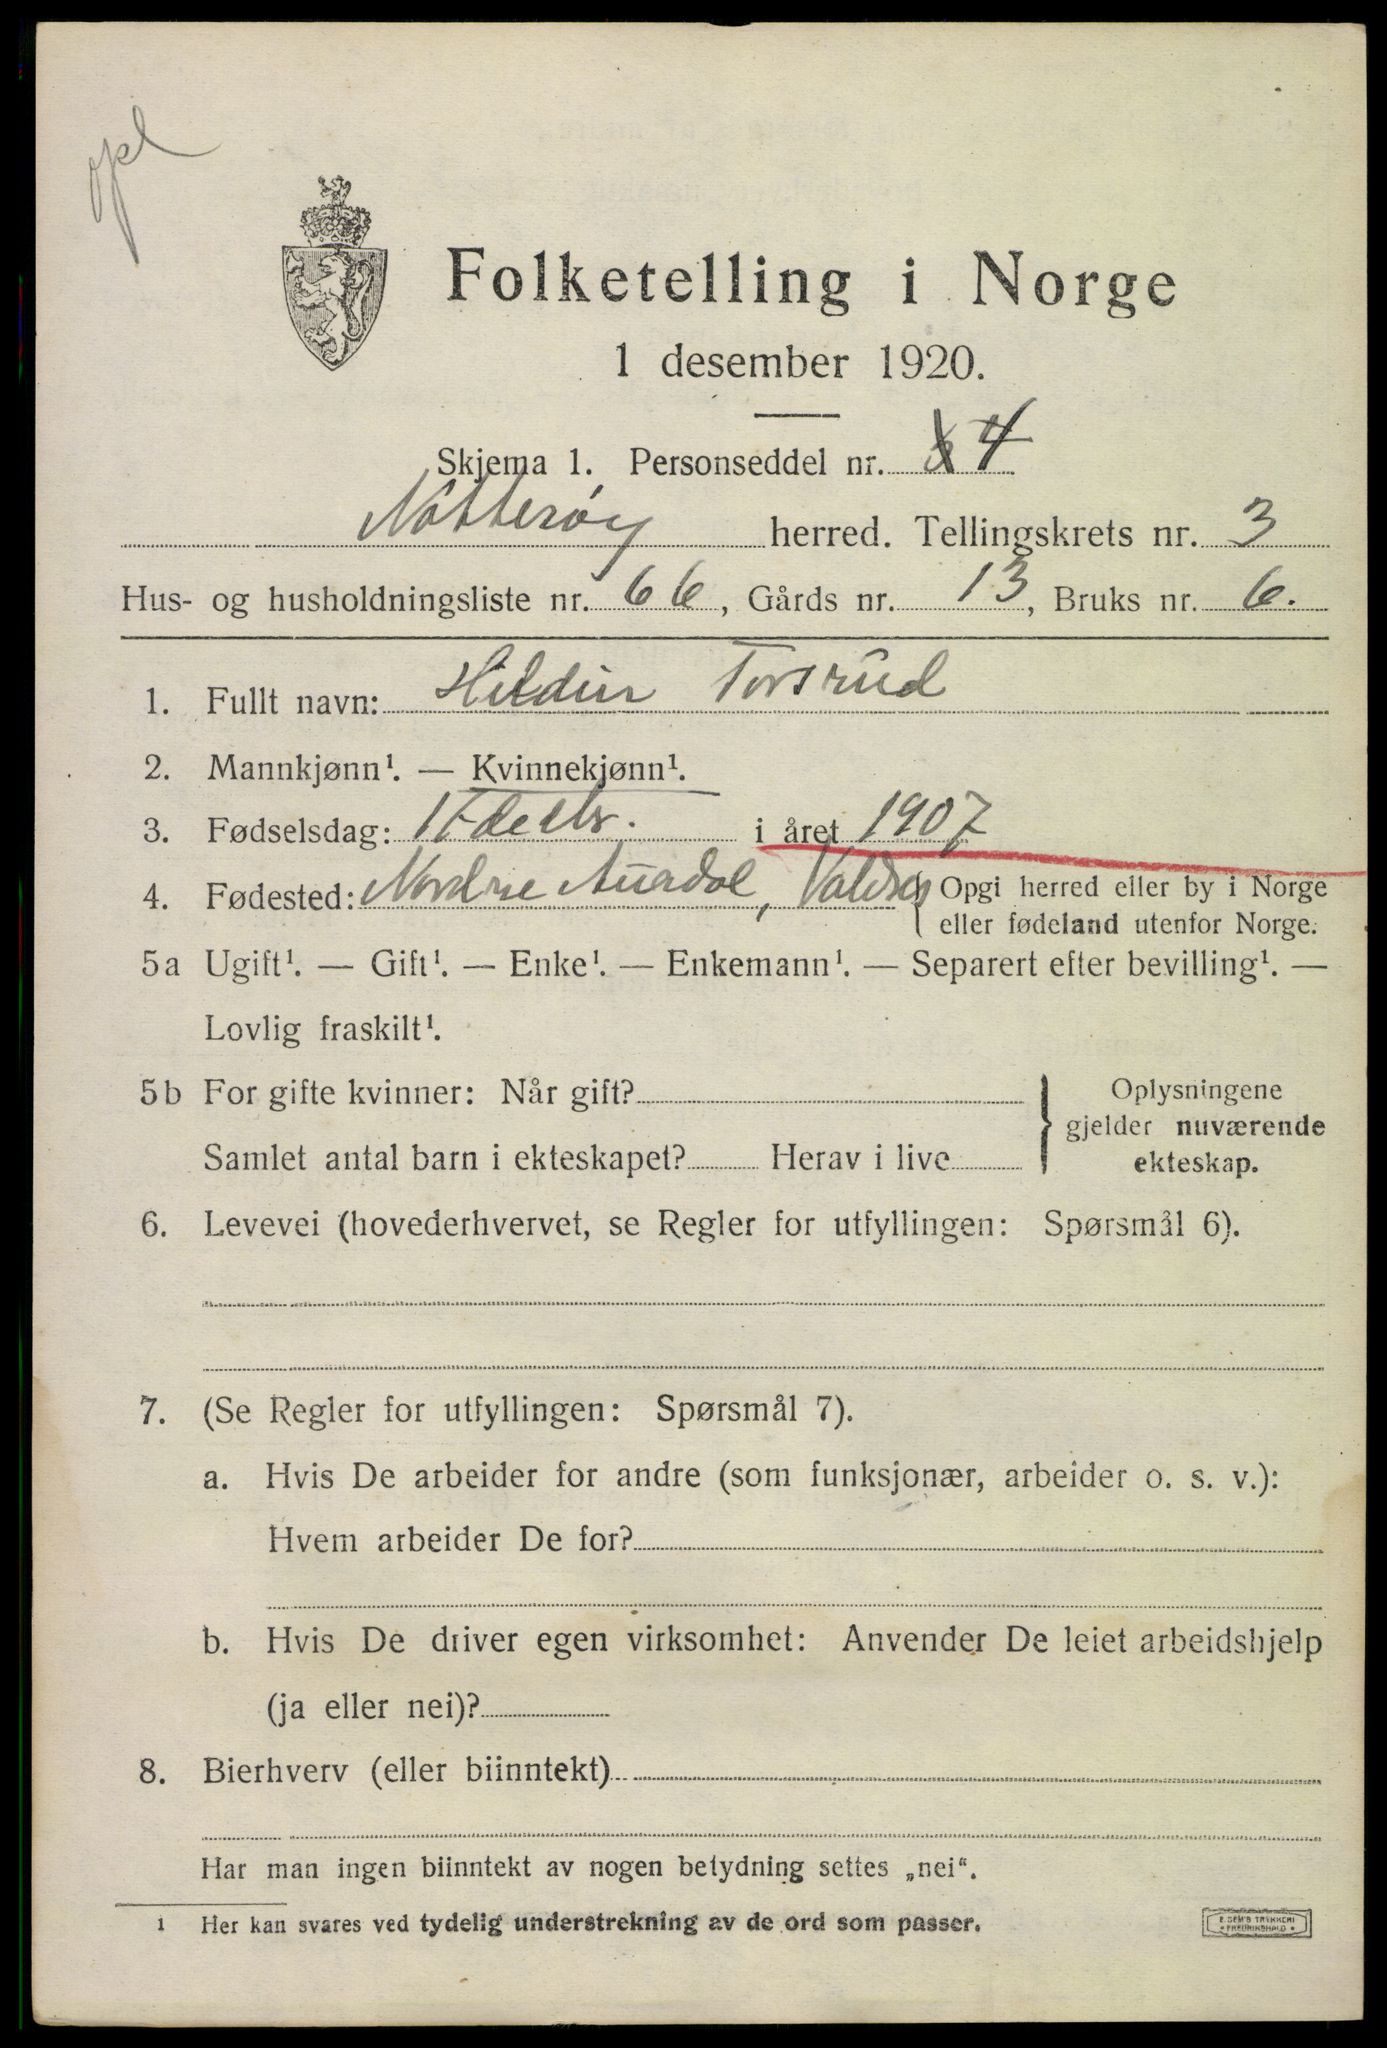 opl
Folketelling i Norge
1 desember 1920.
Skjema 1. Personseddel nr. 4
Nøtterøy herred. Tellingskrets nr. 3
Hus- og husholdningsliste nr. 66, Gårds nr. 13, Bruks nr. 6.
1. Fullt navn: Torsrud
2. Mannkjønn¹. — Kvinnekjønn¹.
3. Fødselsdag: i året 1907
4. Fødested: Nordre Aurdal, Valdres { Opgi herred eller by i Norge
eller fødeland utenfor Norge.
5a Ugift¹. — Gift¹. — Enke¹. — Enkemann¹. — Separert efter bevilling¹. —
Lovlig fraskilt¹.
5b For gifte kvinner: Når gift?
Samlet antal barn i ekteskapet? Herav i live
} Oplysningene
gjelder nuværende
ekteskap.
6. Levevei (hovederhvervet, se Regler for utfyllingen: Spørsmål 6).
7. (Se Regler for utfyllingen: Spørsmål 7).
a. Hvis De arbeider for andre (som funksjonær, arbeider o. s. v.):
Hvem arbeider De for?
b. Hvis De driver egen virksomhet: Anvender De leiet arbeidshjelp
(ja eller nei)?
8. Bierhverv (eller biinntekt)
Har man ingen biinntekt av nogen betydning settes „nei“.
1 Her kan svares ved tydelig understrekning av de ord som passer.
E. SEM'S TRYKKERI
* FREDRIKSHALD *